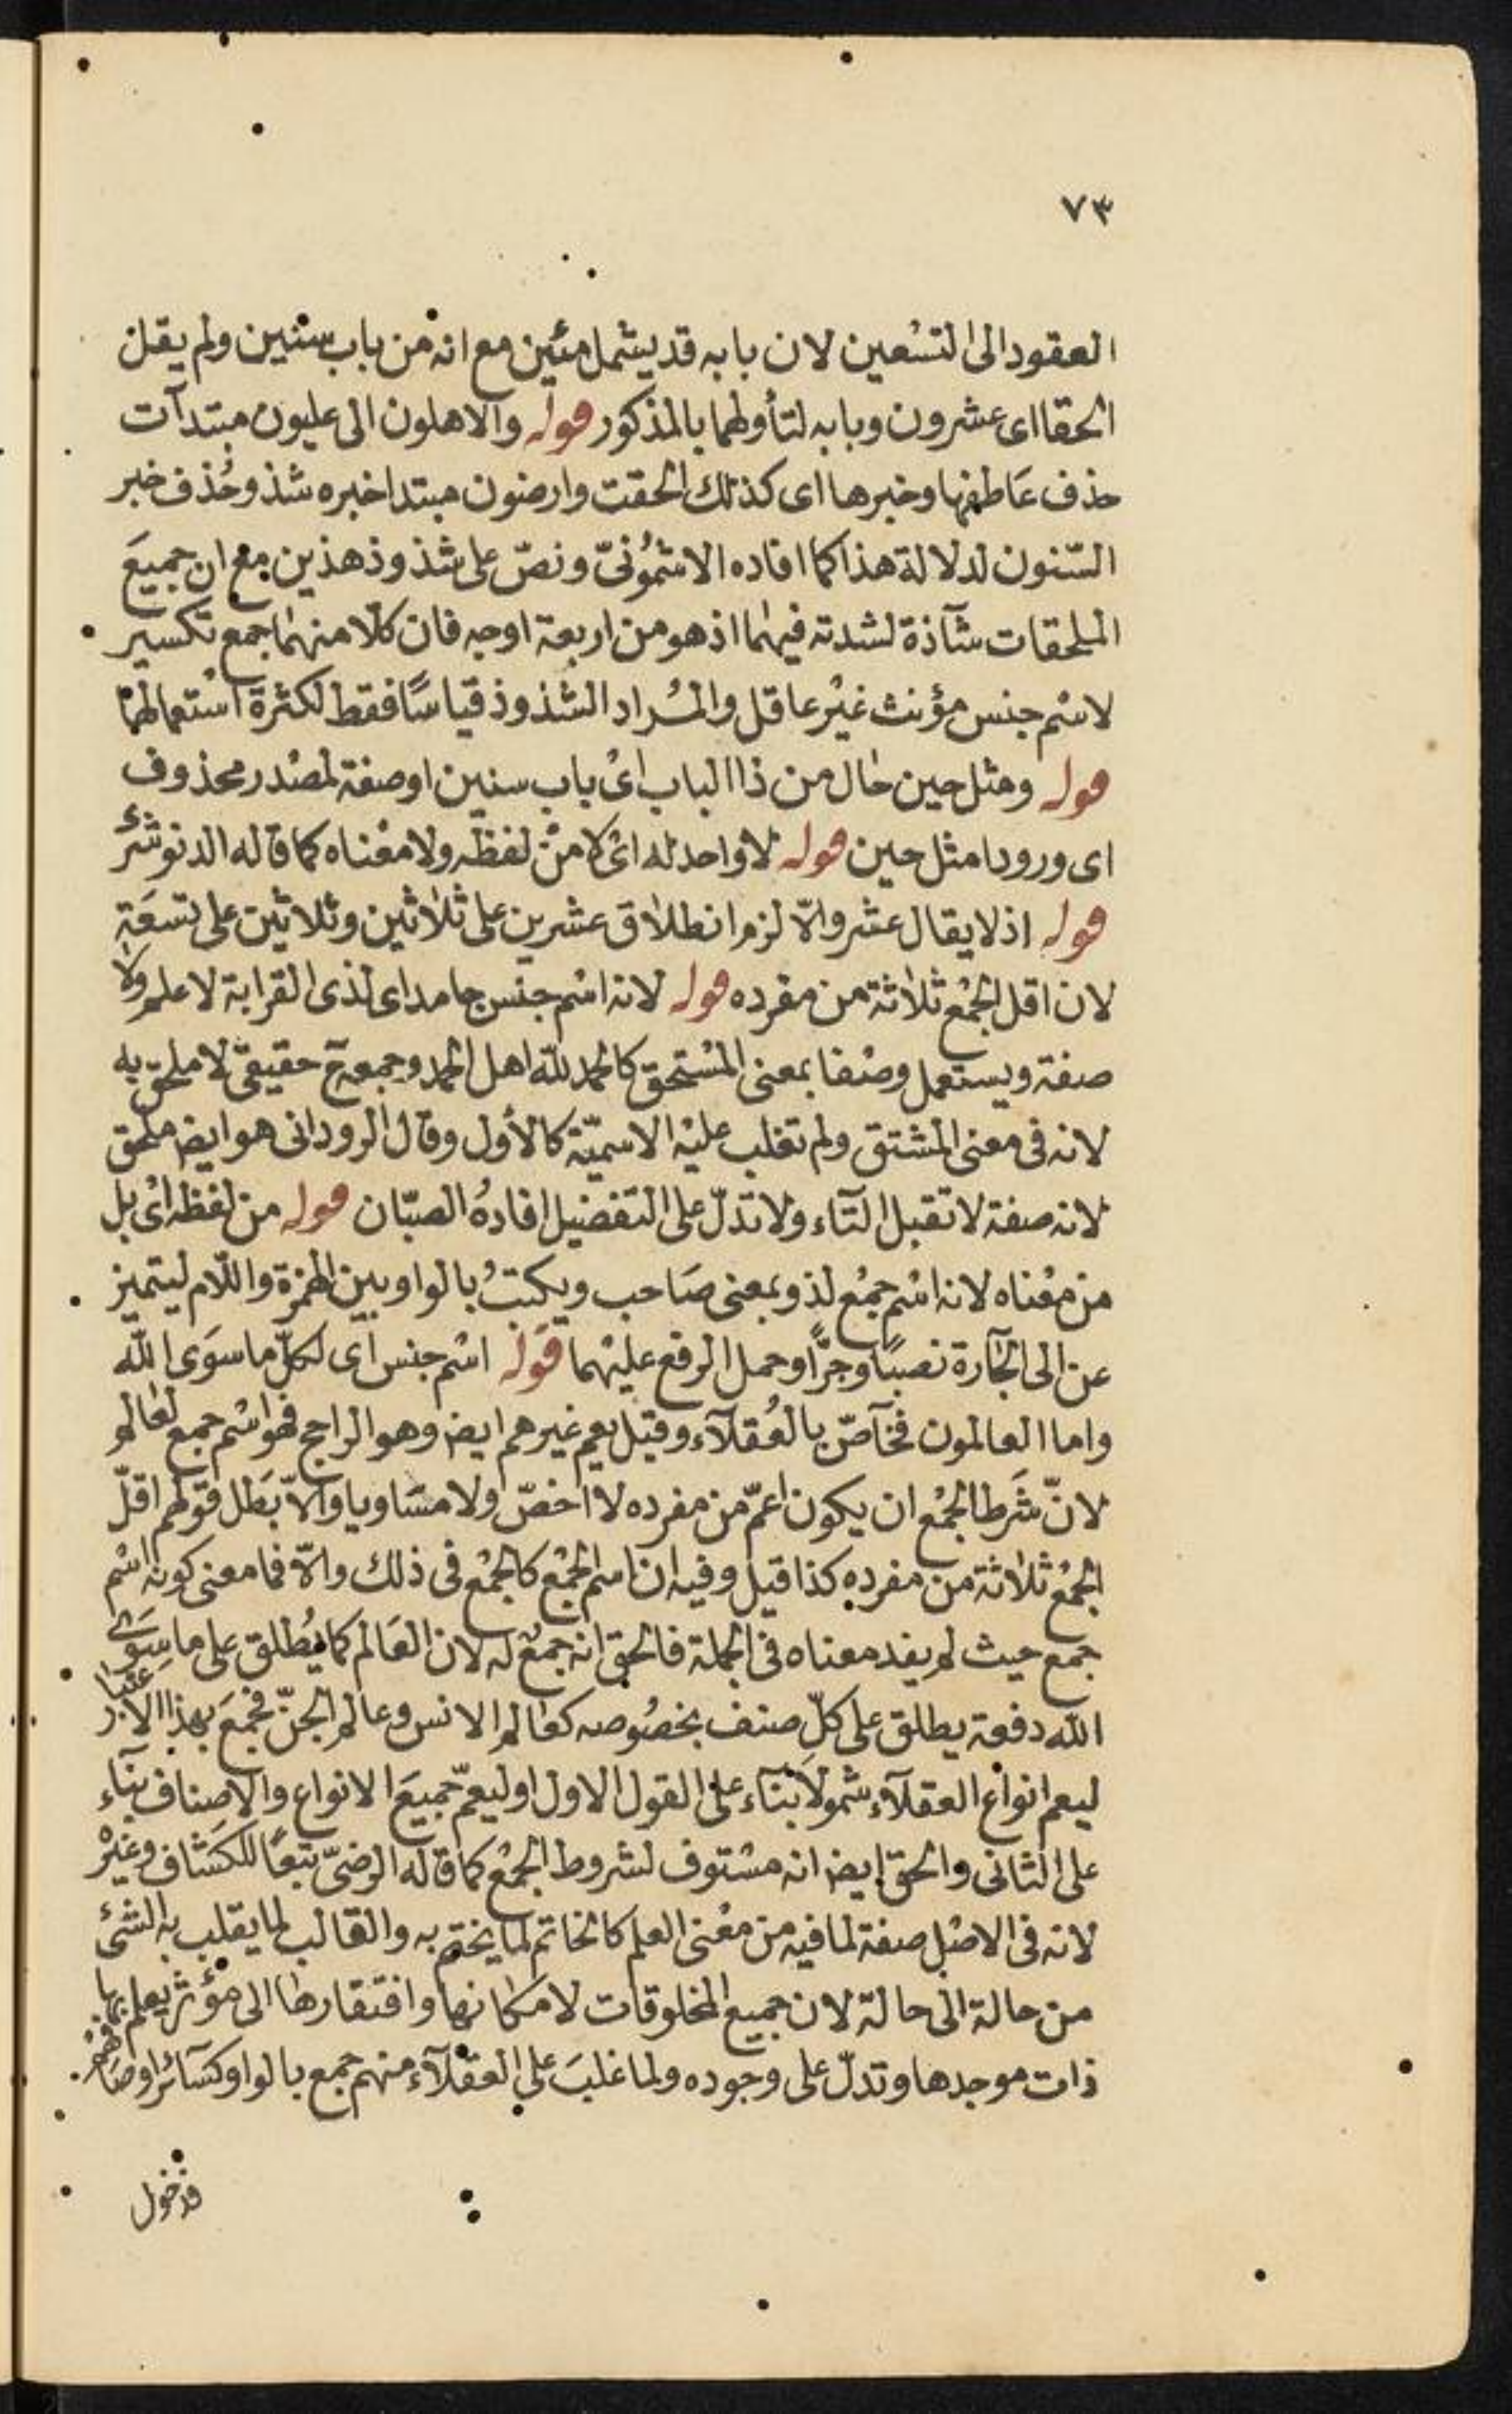 ٧٣
العقود الى التسعين لان بابه قد يشمل مئين مع انه من باب سنين ولم يقل
الحقا اى عشرون وبابه لتأولهما بالمذكور قوله والاهلون الى عليون مبتدآت
حذف عاطفها وخبرها اى كذلك الحقت وارضون مبتدا خبره شذ وحُذف خبر
السّنون لدلالة هذا كما افاده الاشمُونىّ ونصّ على شذوذ هذين مع ان جميعَ
الملحقات شآذة لشدته فيهما اذ هو من اربعة اوجه فان كلّا منهما جمع تكسير
لاسْم جنس مؤنث غيْر عاقل والمُراد الشذوذ قياسًا فقط لكثرة استعمالهما
قوله ومثل حين حال من ذا الباب اىْ باب سنين او صفة لمصْدر محذوف
اى ورودا مثل حين قوله لا واحد له اىْ لا منْ لفظه ولا معْناه كما قاله الدنوشرى
قوله اذ لا يقال عشر والّا لزم انطلاق عشرين على ثلاثين وثلاثين على تسعَة
لان اقل الجمْع ثلاثة من مفرده قوله لانه اسْم جنس جامد اى لذى القرابة لا علم ولا
صفة ويستعمل وصْفا بمعنى المسْتحق كالحمد للّه اهل الحمد وجمعه ح حقيقىّ لا ملحق به
لانه فى معنى المشتق ولم تغلب عليْه الاسميّة كالأول وقال الرودانى هو ايضا ملحق
لانه صفة لا تقبل التّاء ولا تدلّ على التفضيل افادهُ الصبّان قوله من لفظه اىْ بل
من معْناه لانه اسْم جمْع لذو بمعنى صَاحب ويكتبُ بالواو بين الهمزة واللّام ليتميز
عن الى الجآرة نصبًا وجرًّا وحمل الرفع عليْهما قوله اسْم جنس اى لكلّ ما سوَى اللّه
واما العالمون فخآصّ بالعُقلآء وقيل يعم غيرهم ايضا وهو الراجح فهو اسْم جمع لعالم
لانّ شَرط الجمْع ان يكون اعمّ من مفرده لا اخصّ ولا مسَاويا والّا بَطل قوْلهم اقلّ
الجمْع ثلاثة من مفرده كذا قيل وفيه ان اسم الجمْع كالجمْع فى ذلك والّا فما معنى كونه اسْم
جمع حيث لم يفد معناه فى الجملة فالحق انه جمعٌ له لان العَالم كما يُطلق على ما سِوَى
اللّه دفعة يطلق على كلّ صنف بخصُوصه كعالم الانس وعالم الجنّ فجمعَ بهذا الاعتبار
ليعم انواع العقلآء شمولًا بنآء على القول الاول او ليعمّ جميعَ الانواع والاصناف بنآء
على الثانى والحقّ ايضا انه مسْتوف لشروط الجمْع كما قاله الرضىّ تبعًا للكشاف وغيْره
لانه فى الاصْل صفة لما فيه من معْنى العلم كالخاتم لما يختم به والقالب لما يقلب به الشئ
من حالة الى حالة لان جميع المخلوقات لامكانها وافتقارها الى مؤثر يعلم بها
ذات موجدها وتدلّ على وجوده ولما غلبَ على العقلآء منهم جمع بالواو كسَآئر اوصافهم
فدخول